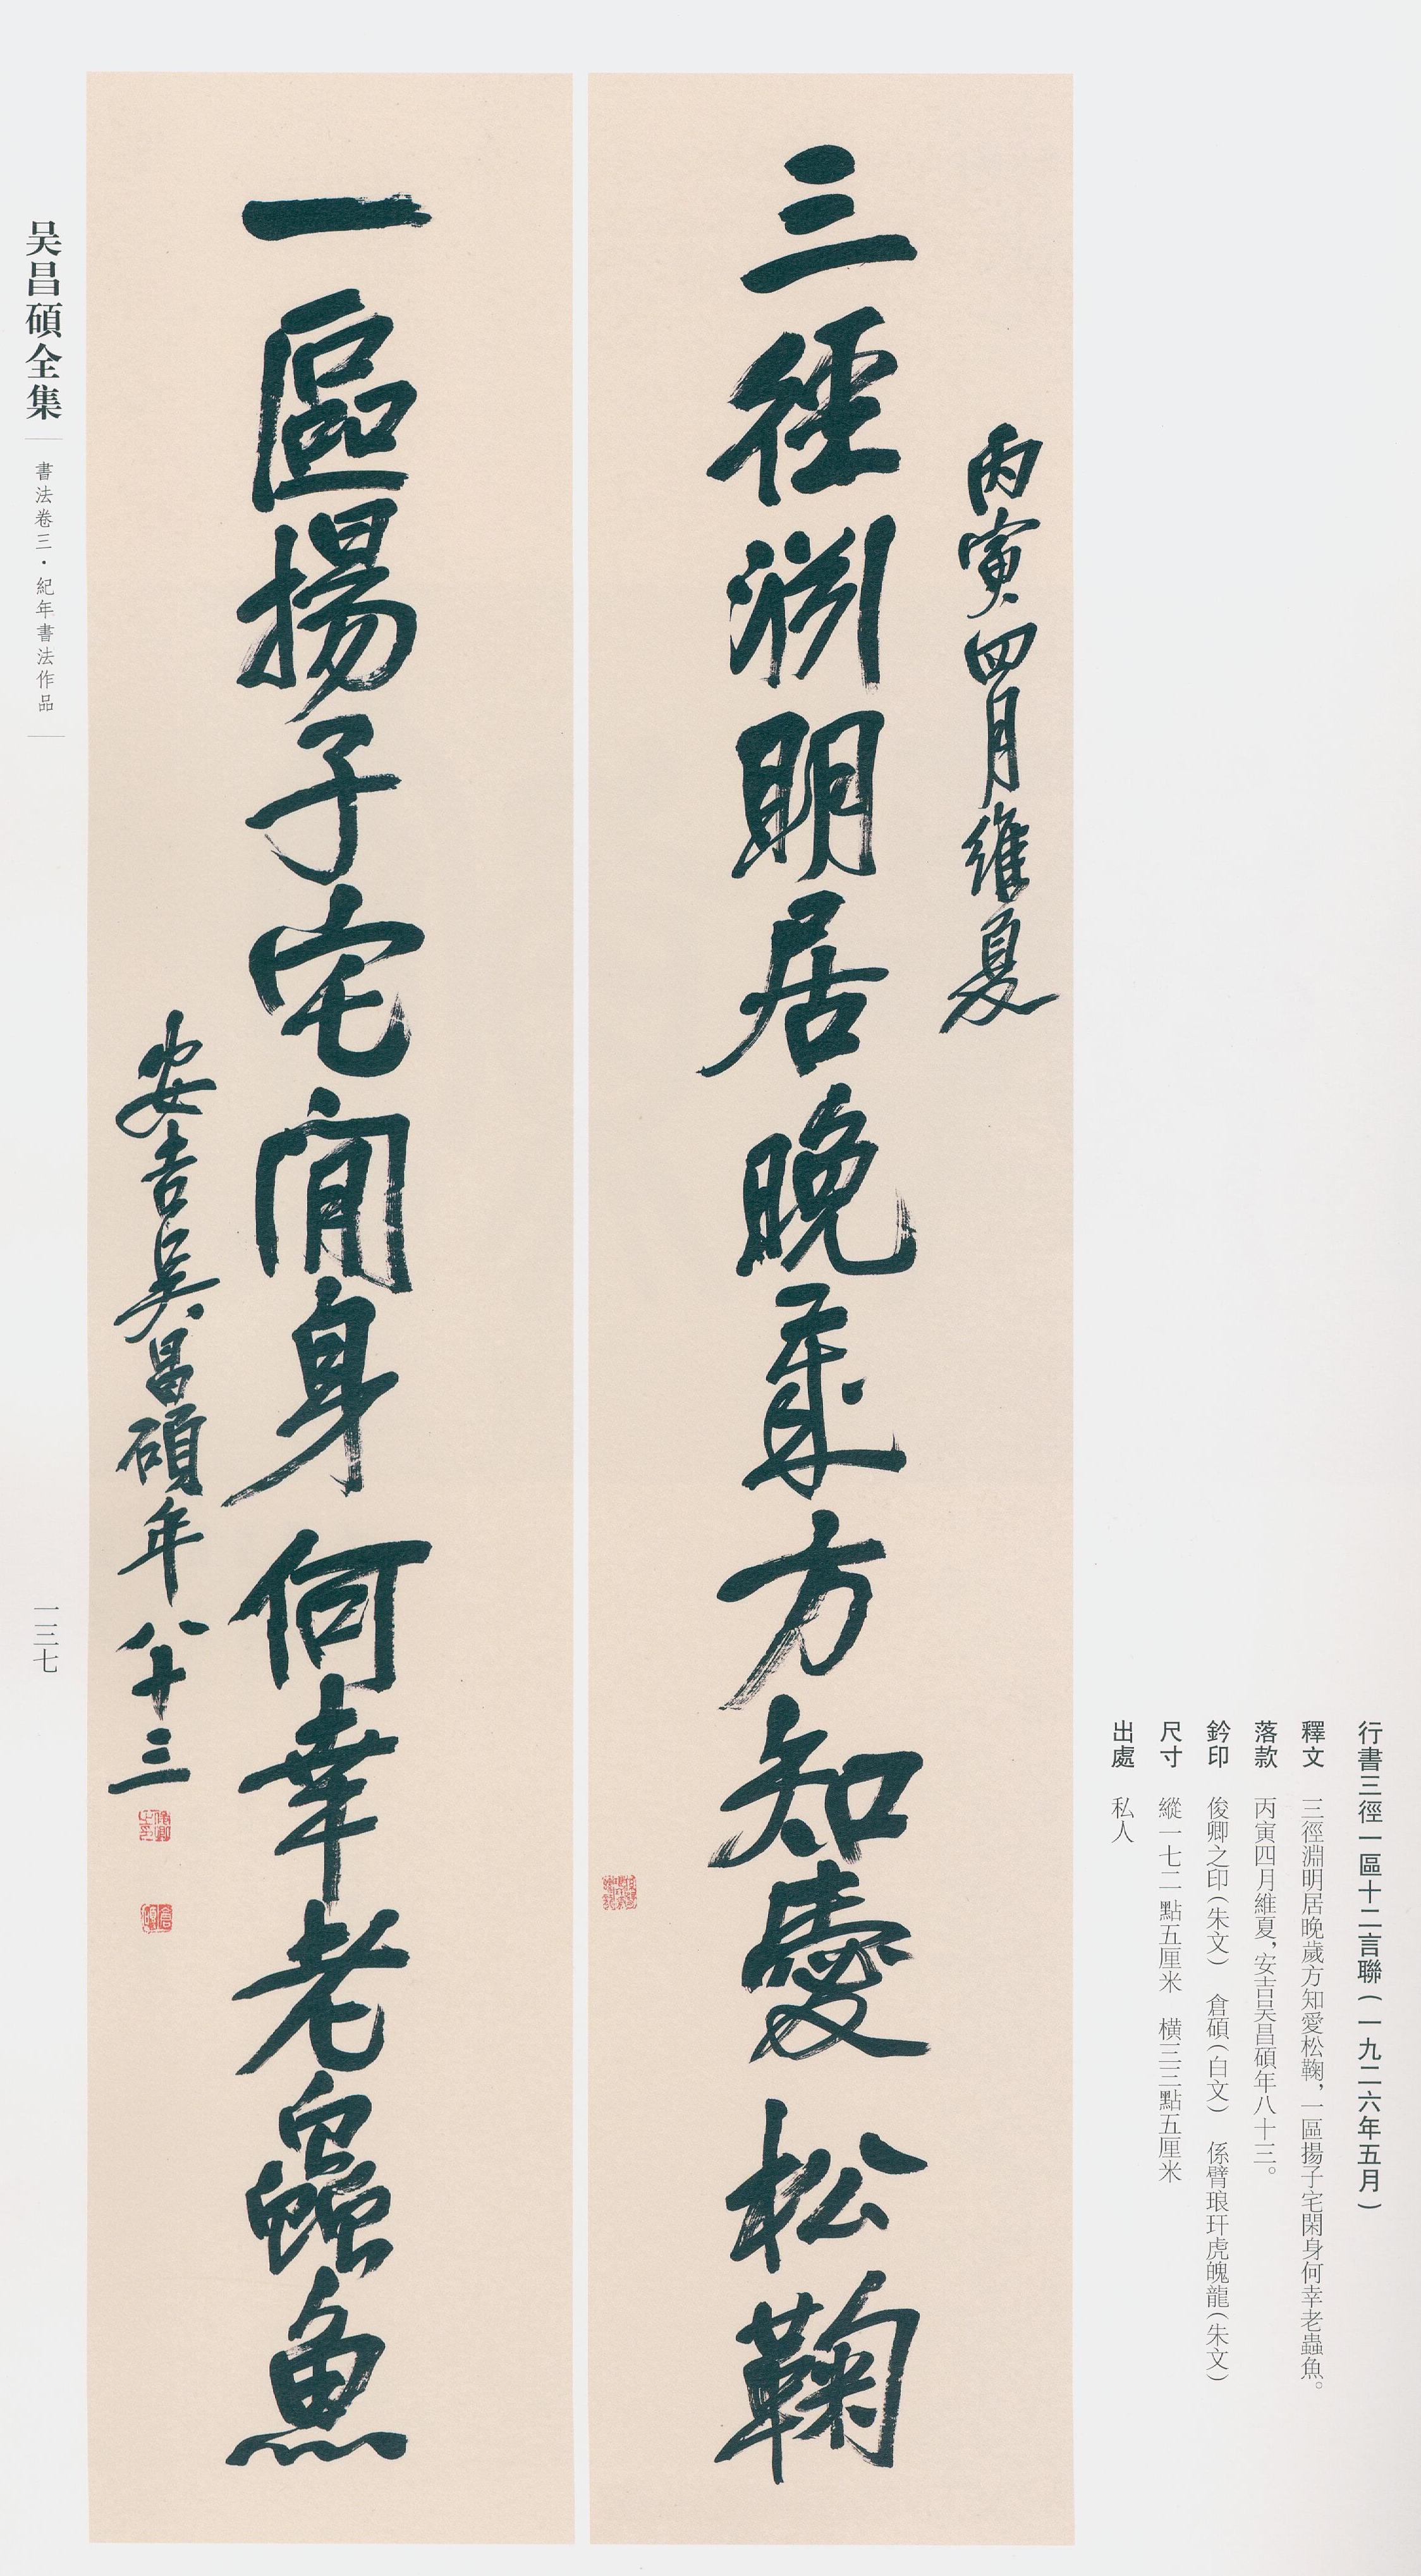 行書三徑一區十二言聯（一九二六年五月）
釋文　三徑淵明居晚歲方知愛松鞠，一區揚子宅閑身何幸老蟲魚。
落款　丙寅四月維夏，安吉吴昌碩年八十三。
鈐印　俊卿之印（朱文）　倉碩（白文）　係臂琅玕虎魄龍（朱文）
尺寸　縱一七二點五厘米　横三三點五厘米
出處　私人
丙寅四月維夏
三徑淵明居晚歲方知愛松鞠
一區揚子宅閒身何幸老蟲魚
安吉吴昌碩年八十三
俊卿之印
倉碩
吴昌碩全集
書法卷三・紀年書法作品
一三七